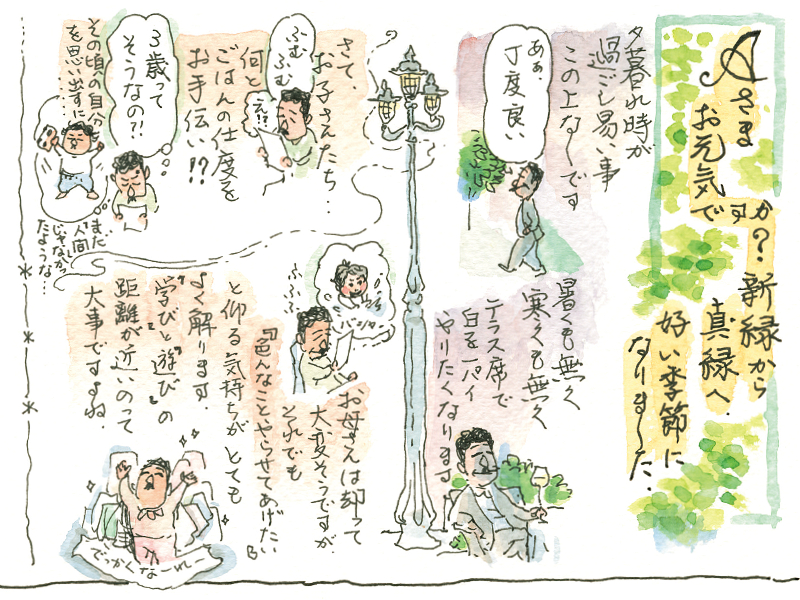 Aさま
お元気
ですか?
新緑から
真緑へ.
好い季節に
なりましーた.
夕暮れ時が
過ごし易い事
この上なーしです
あぁ、
丁度良い
暑くも無く
寒くも無く
テラス席で
白を一パイ
やりたくなります
さて、
お子さんたち…
何と
ごはんの仕度を
お手伝い!?
ふむ
ふむ
え!?
3歳って
そうなの?!
その頃の自分
を思い出すに…
まだ
「人間」
じゃなかっ
たような…
お母さんは却って
大変そうですが、
それでも
『色んなことやらせてあげたい』
と仰る気持ちがとても
よく解ります.
『学び』と『遊び』の
距離が近いのって
大事ですよね.
ふふふ
でっかくなーれー
B